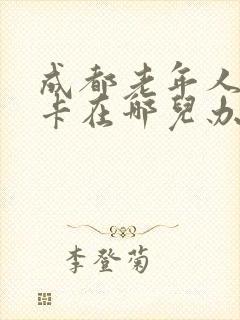 成都老年人
卡在哪兒办
李登菊